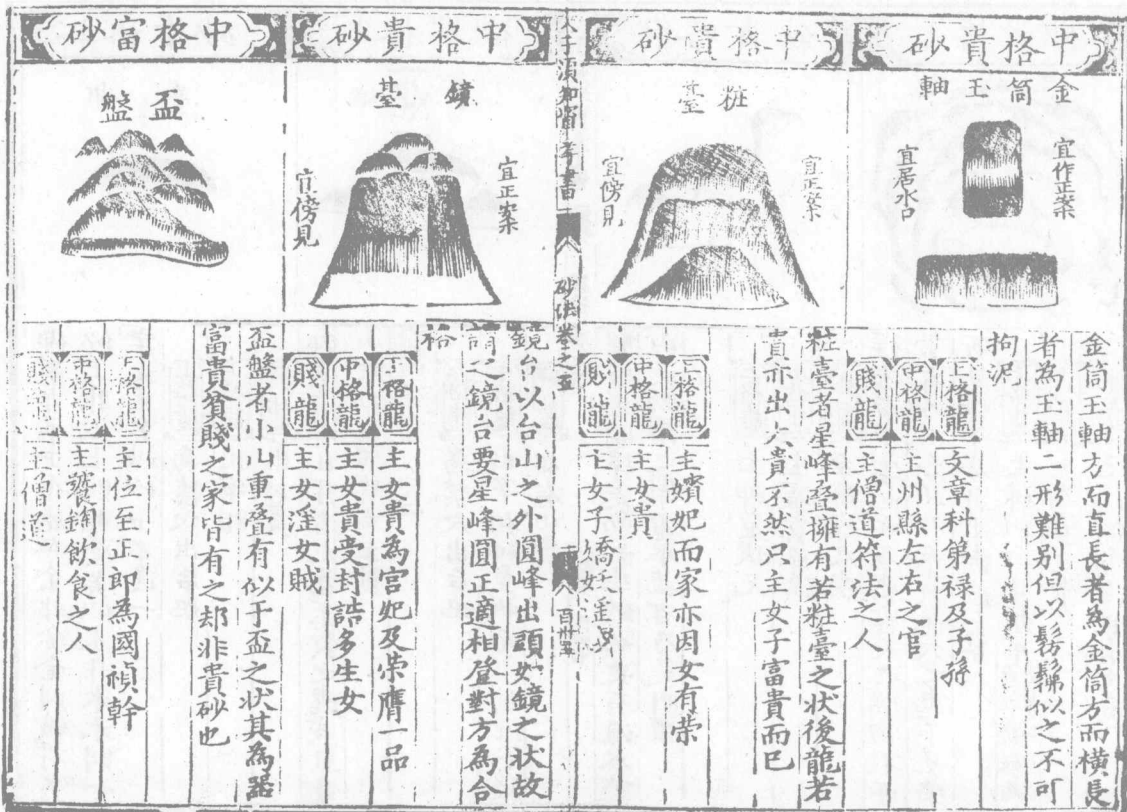 中格貴砂
金筒玉軸
宜作正案
宜居水口
金筒玉軸方而直長者為金筒方而橫長
者為玉軸二形難別但以髣髴似之不可
拘泥
上格龍
文章科第禄及子孫
中格龍
主州縣左右之官
賤龍
主僧道符法之人
中格貴砂
粧臺
宜正案
宜傍見
粧臺者星峰叠擁有若粧臺之状後龍若
貴亦出大貴不然只主女子富貴而已
上格龍
主嬪妃而家亦因女有荣
中格龍
主女貴
賤龍
主女子嬌妖
人子須知
砂法卷之五
中格貴砂
鏡臺
宜正案
宜傍見
鏡台以台山之外圓峰出頭如鏡之状故
謂之鏡台要星峰圓正適相登對方為合
格
上格龍
主女貴為宫妃及荣膺一品
中格龍
主女貴受封誥多生女
賤龍
主女淫女賊
中格富砂
盃盤
盃盤者小山重叠有似于盃之状其為器
富貴貧賤之家皆有之却非貴砂也
上格龍
主位至正卿為國禎幹
中格龍
主饕餮飲食之人
賤龍
主僧道